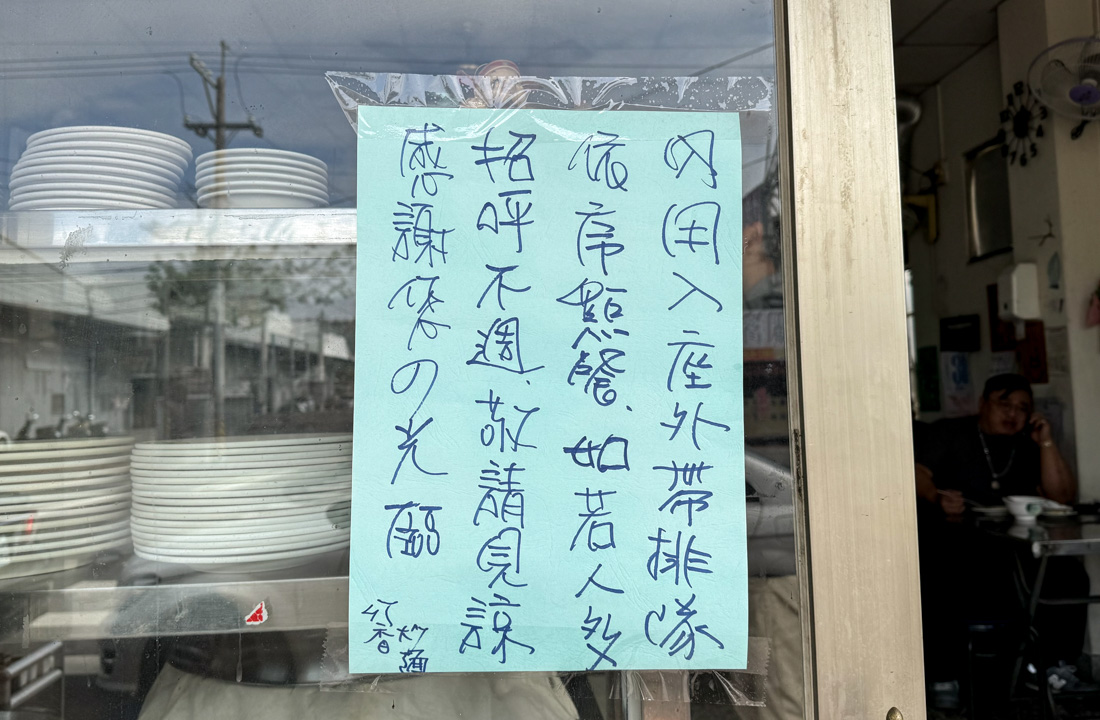 內用入座外帶排隊
依序點餐．如若人多
招呼不週．敬請見諒
感謝您の光顧
香炒麵